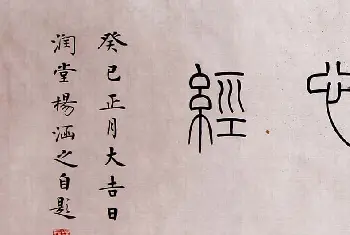 心經
癸巳正月大吉日
润堂楊涵之自題